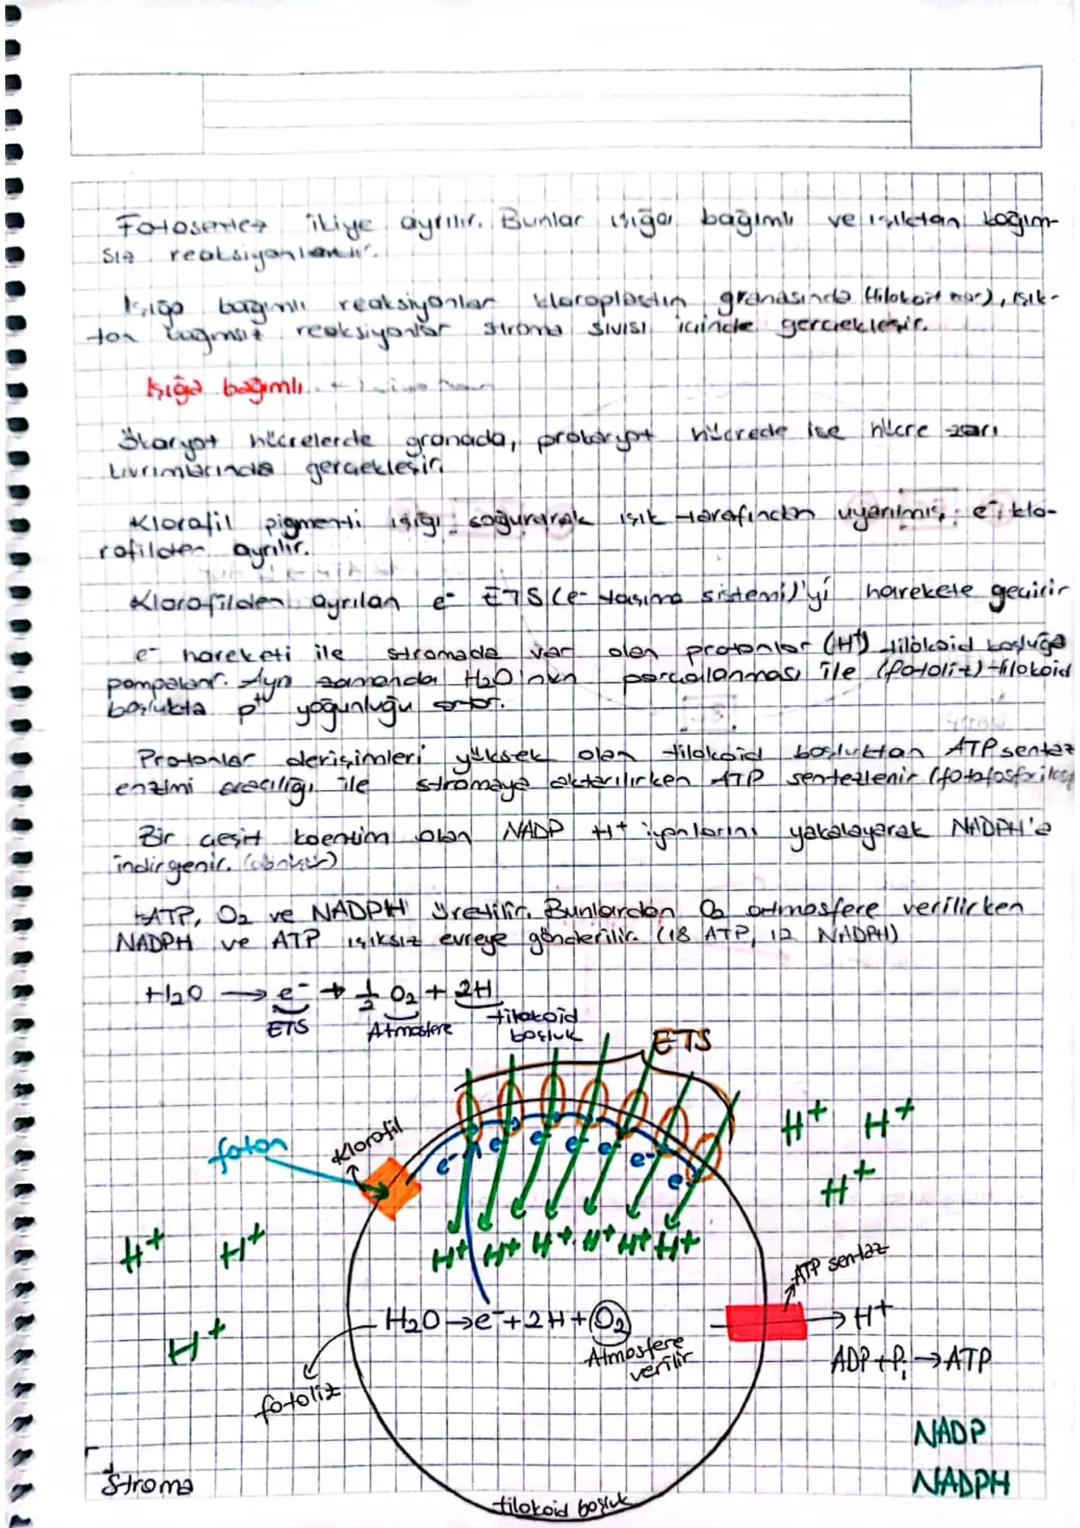 Fotosentez ikiye ayrılır. Bunlar ışığa bağımlı ve ışıktan bağım-
sız reaksiyonlardır.
Işığa bağımlı reaksiyonlar kloroplastın granasında (tilokoit zar), ışık-
tan bağımsız reaksiyonlar stroma sıvısı içinde gerçekleşir.
Işığa bağımlı
Ökaryot hücrelerde granada, prokaryot hücrede ise hücre zarı
kıvrımlarında gerçekleşir.
Klorofil pigmenti ışığı soğurarak ışık tarafından uyarılmış e⁻ klo-
rofilden ayrılır.
Klorofilden ayrılan e⁻ ETS (e⁻ taşıma sistemi)'yi harekete geçirir
e⁻ hareketi ile stromada var olan protonlar (H⁺) tilokoid boşluğa
pompalanır. Aynı zamanda H₂O'nun parçalanması ile (fotoliz) tilokoid
boşlukta p⁺ yoğunluğu artar.
Protonlar derişimleri yüksek olan tilokoid boşluktan ATP sentaz
enzimi aracılığı ile stromaya aktarılırken ATP sentezlenir (fotofosforilasy
Bir çeşit koenzim olan NADP H⁺ iyonlarını yakalayarak NADPH'a
indirgenir.
ATP, O₂ ve NADPH üretilir. Bunlardan O₂ atmosfere verilirken
NADPH ve ATP ışıksız evreye gönderilir. (18 ATP, 12 NADPH)
H₂O → e⁻ + 1/2 O₂ + 2H
ETS Atmosfere tilokoid
boşluk
ETS
foton
Klorofil
H⁺ H⁺
H⁺
e⁻ e⁻ e⁻ e⁻ e⁻ e⁻ e⁻
H⁺ H⁺ H⁺ H⁺ H⁺ H⁺
H⁺ H⁺
H⁺
ATP sentaz
H₂O → e⁻ + 2H + O₂
Atmosfere
verilir
→ H⁺
ADP + Pᵢ → ATP
fotoliz
NADP
NADPH
Stroma
tilokoid boşluk